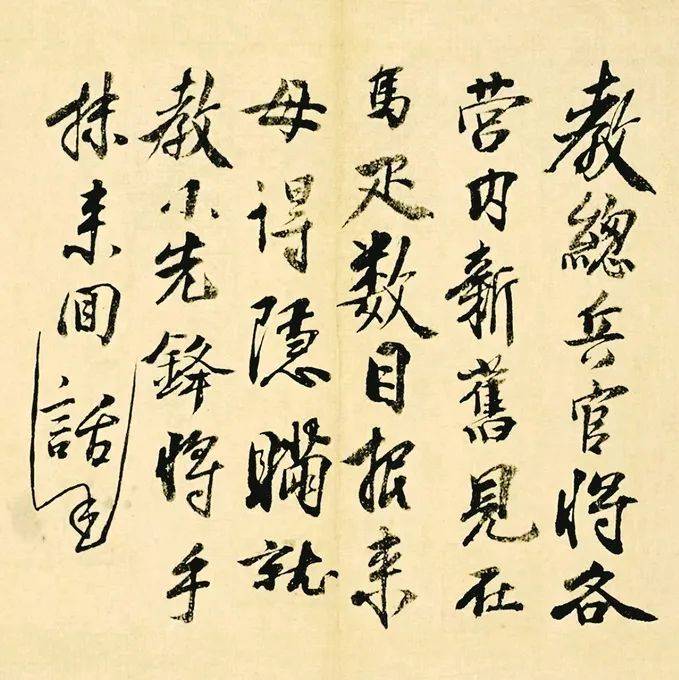 教總兵官将各
营内新舊見在
馬疋数目报来
毋得隱瞞就
教小先鋒将手
抹来囬話